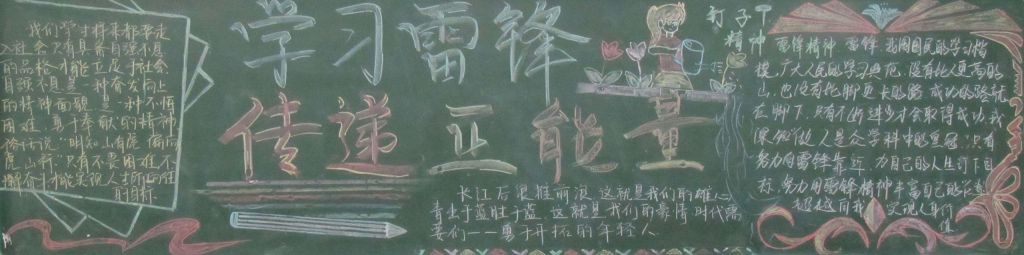 学习雷锋
传递正能量
我们学才将来都要走
入社会 只有具备自强不息
的品格 才能立足于社会
自强不息是一种奋发向上
的精神面貌 是一种不惧
困难 勇于奉献的精神
俗话说"明知山有虎 偏向
虎山行"只有不畏困难 不
懈奋斗才能实现人生所定胜
取目标
长江后浪推前浪 这就是我们的雄心
青出于蓝胜于蓝 这就是我们的豪情 时代需
要们——勇于开拓的年轻人
钉子
精神
雷锋精神 雷锋 我国自民的学习楷
模 广大人民的学习典范 没有比人更高的
山 也没有比脚更长的路 成功的路就
在脚下 只有不断进步才会取得成功 我
做人是众学科中的 只有
努力向雷锋靠近 为自己的人生订下目
标 努力用雷锋精神丰富自己的
超越自我 实现人身价
值